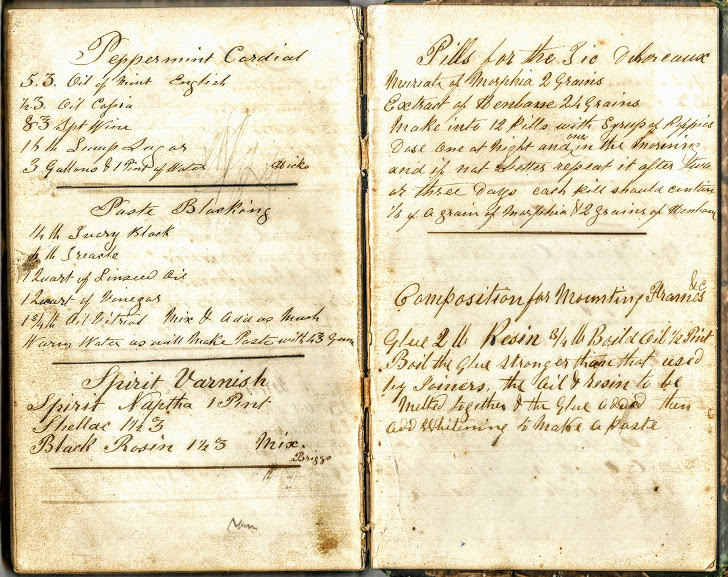 Peppermint Cordial
5 ʒ. Oil of Mint English
ʒ. Oil
8 ʒ Spt Wine
1 lb Lump Sugar
3 Gallons & 1 Pint of Water
Paste Blacking
1/4 lb Ivory Black
lb Treacle
1 Quart of Linseed Oil
1 Quart of Vinegar
1 3/4 lb Oil Vitriol Mix & Add as Much
Warm Water as will Make Paste with 4 ʒ Gum
Spirit Varnish
Spirit Naptha 1 Pint
Shellac 1½ ʒ
Black Rosin 1½ ʒ Mix.
Briggs
Pills for the Tic Doloreaux
Muriate of Morphia 2 Grains
Extract of Henbane 24 Grains
Make into 12 Pills with Syrup of Poppies
Dose One at Night and one in the Morning
and if not better repeat it after two
or three Days each Pill should contain
of a grain of Morphia & 2 Grains of Henbane
Composition for Mounting Frames &c
Glue 2 lb Resin 3/4 lb Boild Oil ½ Pint
Boil the Glue stronger than that used
by Joiners, the Oil & Resin to be
Melted together & the Glue added then
add Whitening to Make a Paste